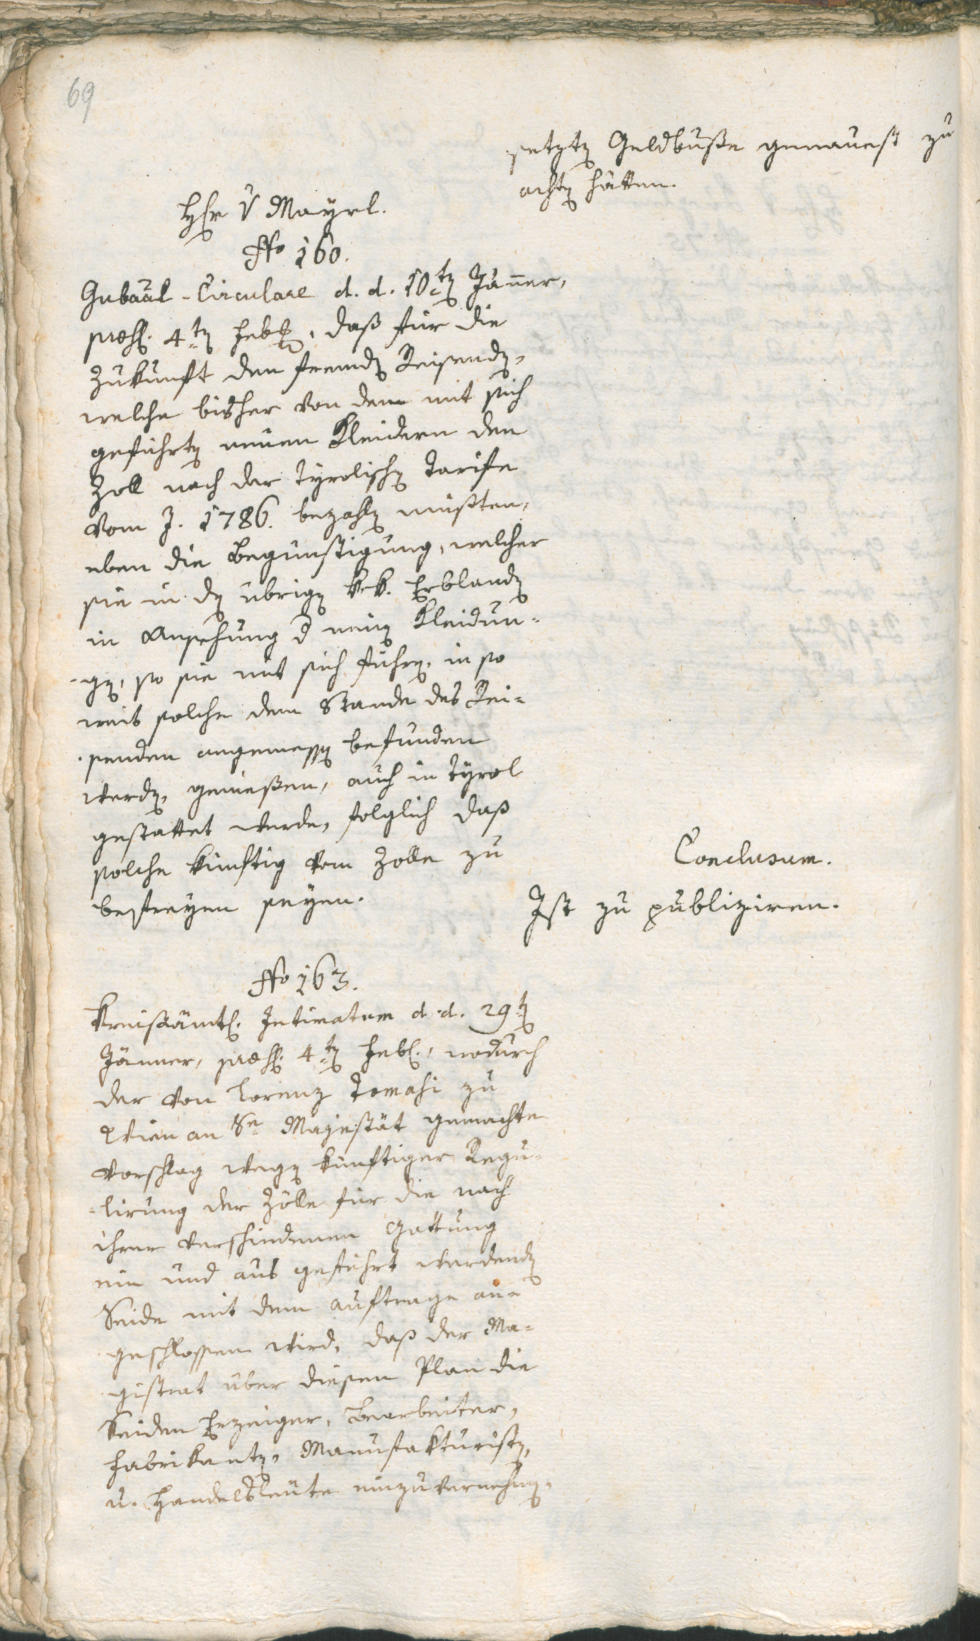 69
setzten Geldbuße genauest zu
achten hätten.
Hr. v Mayrl.
No 160.
Gubaal-Circulare d. d. 10ten Jänner,
præs. 4ten Feb. daß für die
Zukunft den fremden Reisenden,
welche bisher von den mit sich
geführten neuen Kleidern den
Zoll nach der Tyrolischen Tariffe
vom J. 1786. bezahlen mußten,
eben die Begünstigung, welcher
sie in den übrigen k.k. Erblanden
in Ansehung d neuen Kleidun-
gen, so sie mit sich führen, in so
weit solche dem Stande des Rei-
senden angemessen befunden
werden, genießen, auch in Tyrol
gestattet werde, folglich daß
solche künftig vom Zolle zu
befreyen seyen.
Conclusum.
Ist zu publiziren.
No 163.
Kreisämtl. Intimatum d. d. 29ten
Jänner, præs. 4ten Feb., wodurch
der von Lorenz Tomasi zu
Wien an Se Majestät gemachte
Vorschlag wegen künftiger Regu-
lirung der Zölle für die nach
ihrer verschiedenen Gattung
ein und aus geführt werdenden
Seide mit dem Auftrage an-
geschlossen wird, daß der Ma-
gistrat über diesen Plan die
Seiden Erzeiger, Bearbeiter,
Fabrikanten, Manufakturisten,
u. Handelsleute einzuvernehmen,